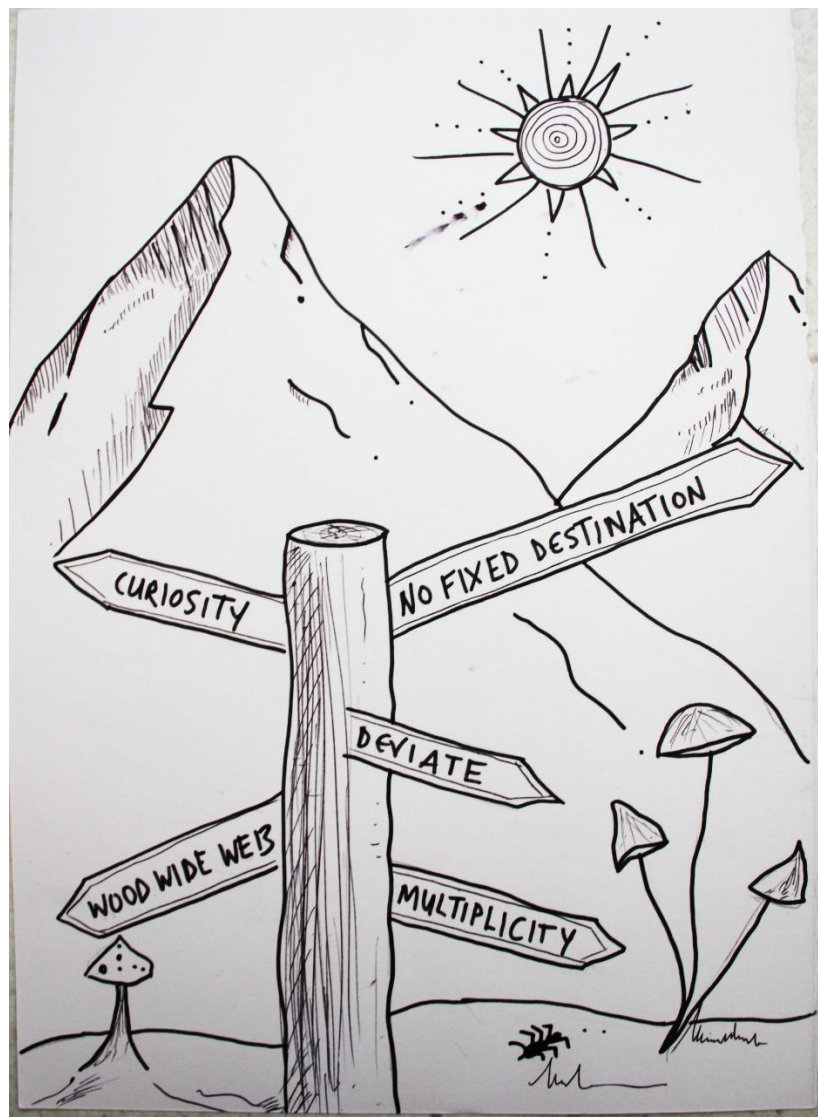 CURIOSITY
NO FIXED DESTINATION
DEVIATE
WOOD WIDE WEB
MULTIPLICITY